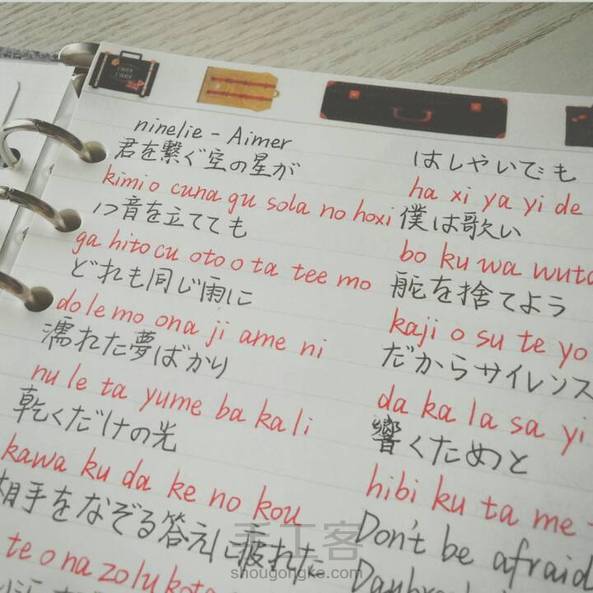 ninelie - Aimer
君を繋ぐ空の星が
kimi o cuna gu sola no hoxi
1つ音を立てても
ga hito cu oto o ta tee mo
どれも同じ雨に
do le mo ona ji ame ni
濡れた夢ばかり
nu le ta yume ba ka li
乾くだけの先
kawa ku da ke no kou
相手をなぞる答えに疲れた
te o na zo lu kota
はしゃいでも
ha xi ya yi de
僕は歌い
bo ku wa wuta
舵を捨てよう
kaji o su te yo
だからサイレンス
da ka la sa yi
響くためと
hibi ku ta me
Don't be afraid
手工客
shougongke.com